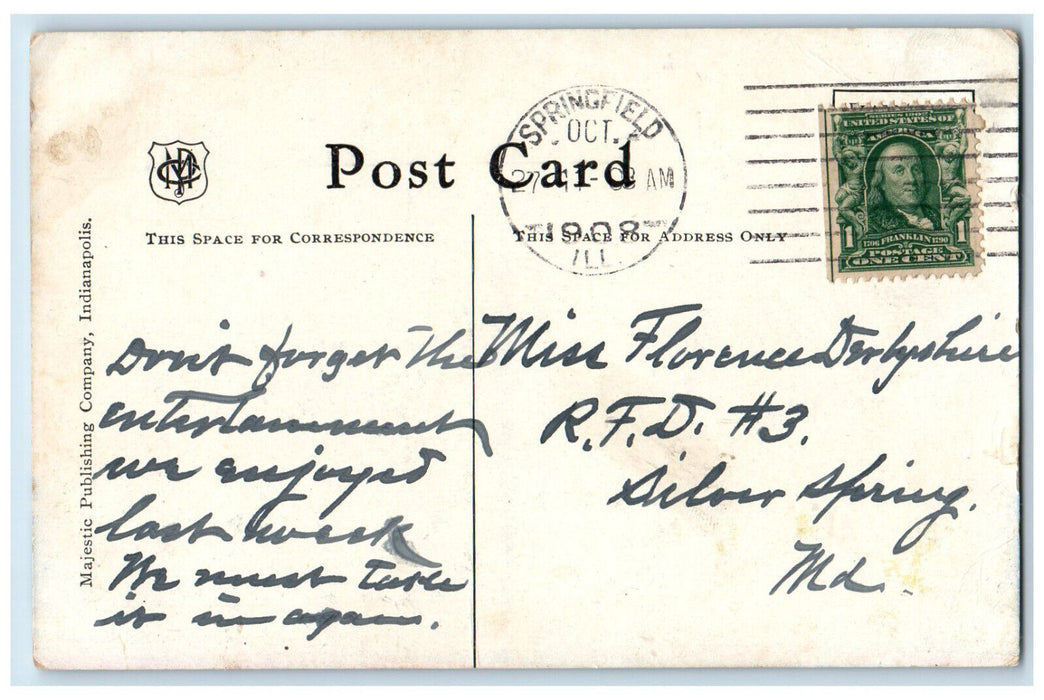 Post Card
THIS SPACE FOR CORRESPONDENCE
THIS SPACE FOR ADDRESS ONLY
Majestic Publishing Company, Indianapolis.
SPRINGFIELD
OCT.
27
AM
1908
ILL.
UNITED STATES OF
AMERICA
1 1706 FRANKLIN 1790 1
POSTAGE
ONE CENT
Don't forget the
entertainment
we enjoyed
last week
We must take
it in again.
Miss Florence Derbyshire
R.F.D. #3.
Silver Spring.
Md.